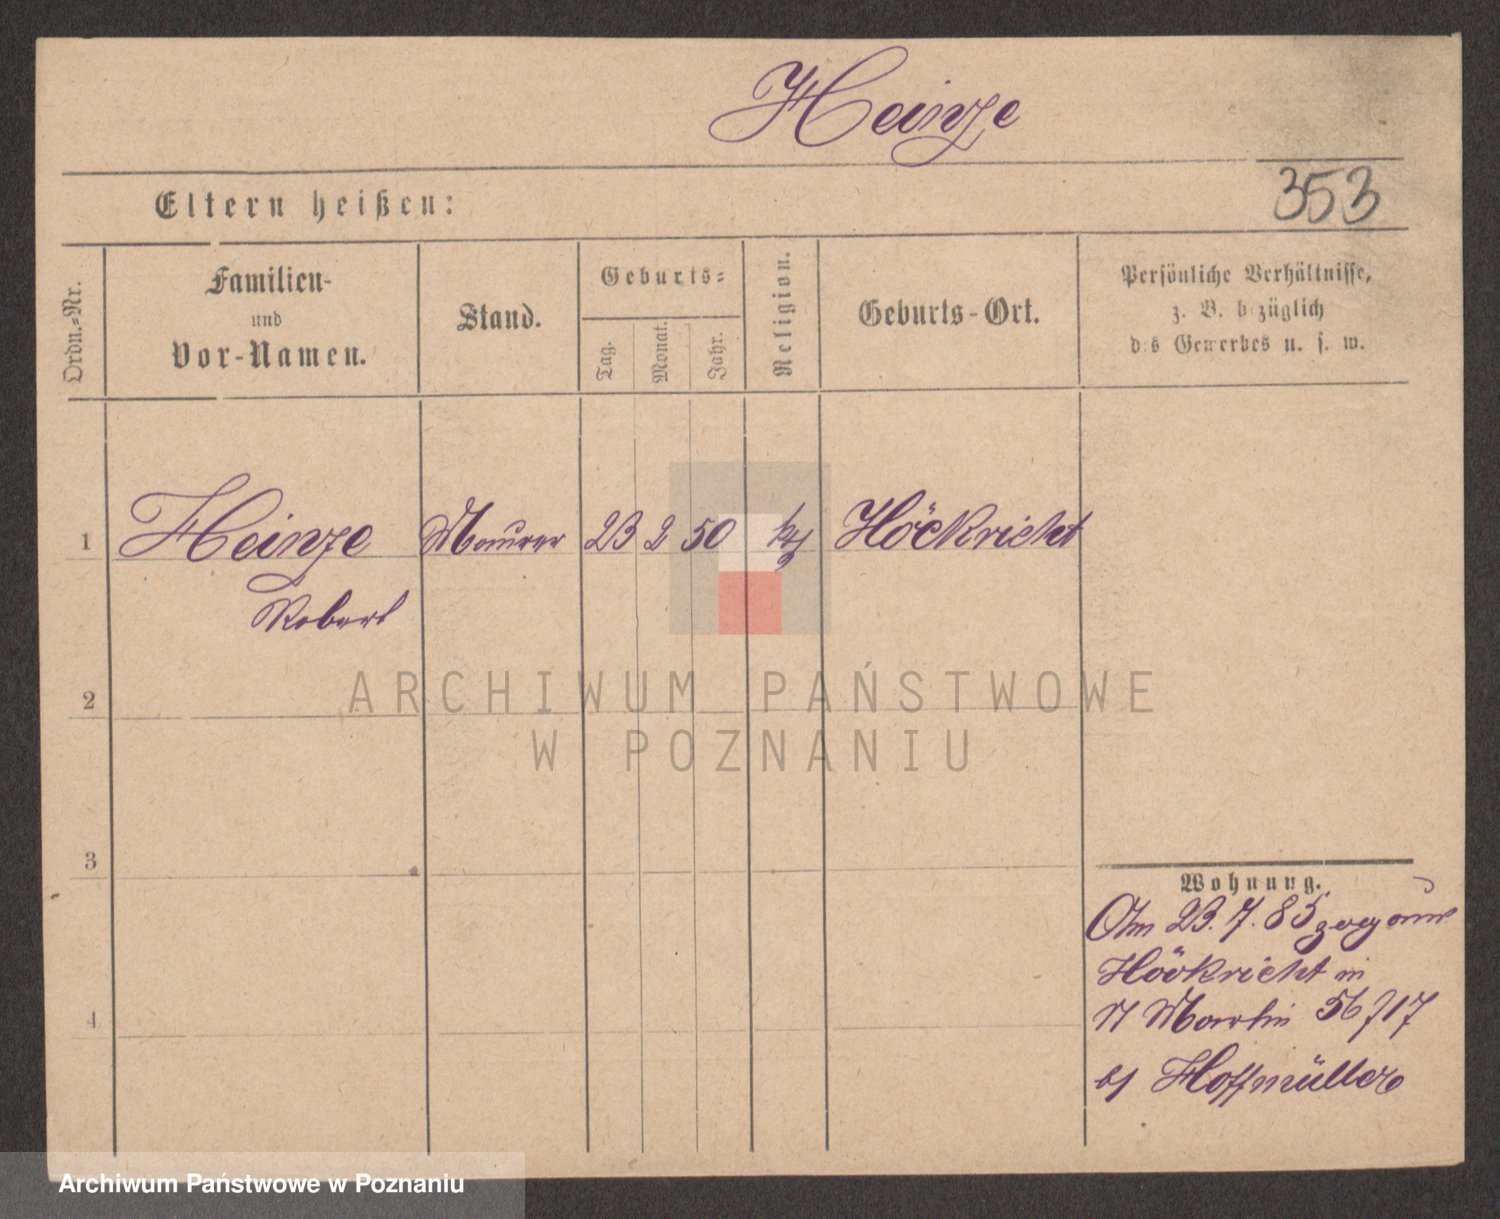 Heinze
353
Eltern heißen:
Ordn.-Nr.
Familien-
und
Vor-Namen.
Stand.
Geburts-
Tag.
Monat.
Jahr.
Religion.
Geburts-Ort.
Persönliche Verhältnisse,
z. B. bezüglich
des Gewerbes u. s. w.
1 Heinze Maurer 23 2 50 Höckricht
Robert
2
3
4
Wohnung.
Am 23. 7. 85 zog aus
Höckricht in
St Martin 56/17
b/ Hoffmüller
ARCHIWUM PAŃSTWOWE
W POZNANIU
Archiwum Państwowe w Poznaniu